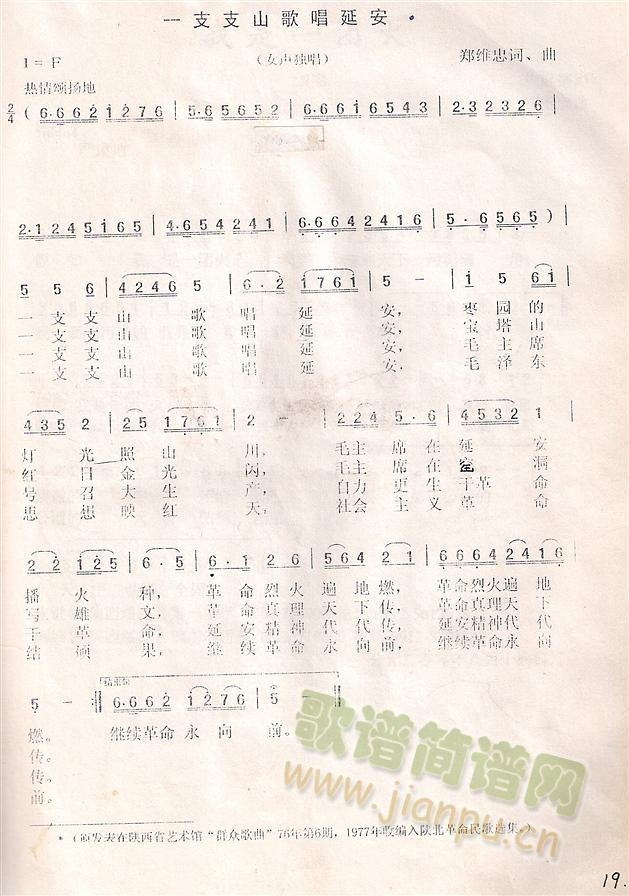 一支支山歌唱延安 *
1=F
（女声独唱）
郑维忠词、曲
热情颂扬地
2/4 （6·6 6 2 1 2 7 6 | 5·6 5 6 5 2 | 6·6 6 1 6 5 4 3 | 2·3 2 3 2 6 |
2·1 2 4 5 1 6 5 | 4·6 5 4 2 4 1 | 6·6 6 4 2 4 1 6 | 5·6 5 6 5 ）|
5 5 6 | 4 2 4 6 5 | 6·2 1 7 6 1 | 5 - | 1 5 6 1 |
一支支山歌唱延安，枣园的
一支支山歌唱延安，宝塔山
一支支山歌唱延安，毛主席
一支支山歌唱延安，毛泽东
4 3 5 2 | 2 5 1 7 6 1 | 2 - | 2 2 4 5·6 | 4 5 3 2 1 |
灯光照山川，毛主席在延安
红日金光闪，毛主席在窑洞
号召大生产，自力更生干革命
思想映红天，社会主义革命
2 2 1 2 5 | 6·5 | 6·1 2 6 | 5 6 4 2 1 | 6 6 6 4 2 4 1 6 |
播火种，革命烈火遍地燃，革命烈火遍地
写雄文，革命真理天下传，革命真理天下
干革命，延安精神代代传，延安精神代代
结硕果，继续革命永向前，继续革命永向
5 - :| 结束句 6·6 6 2 1 2 7 6 | 5 - ‖
燃。 继续革命永向前。
传。
传。
前。
*（原发表在陕西省艺术馆“群众歌曲”76年第6期，1977年收编入陕北革命民歌选集。）
歌谱简谱网
www.jianpu.cn
19.